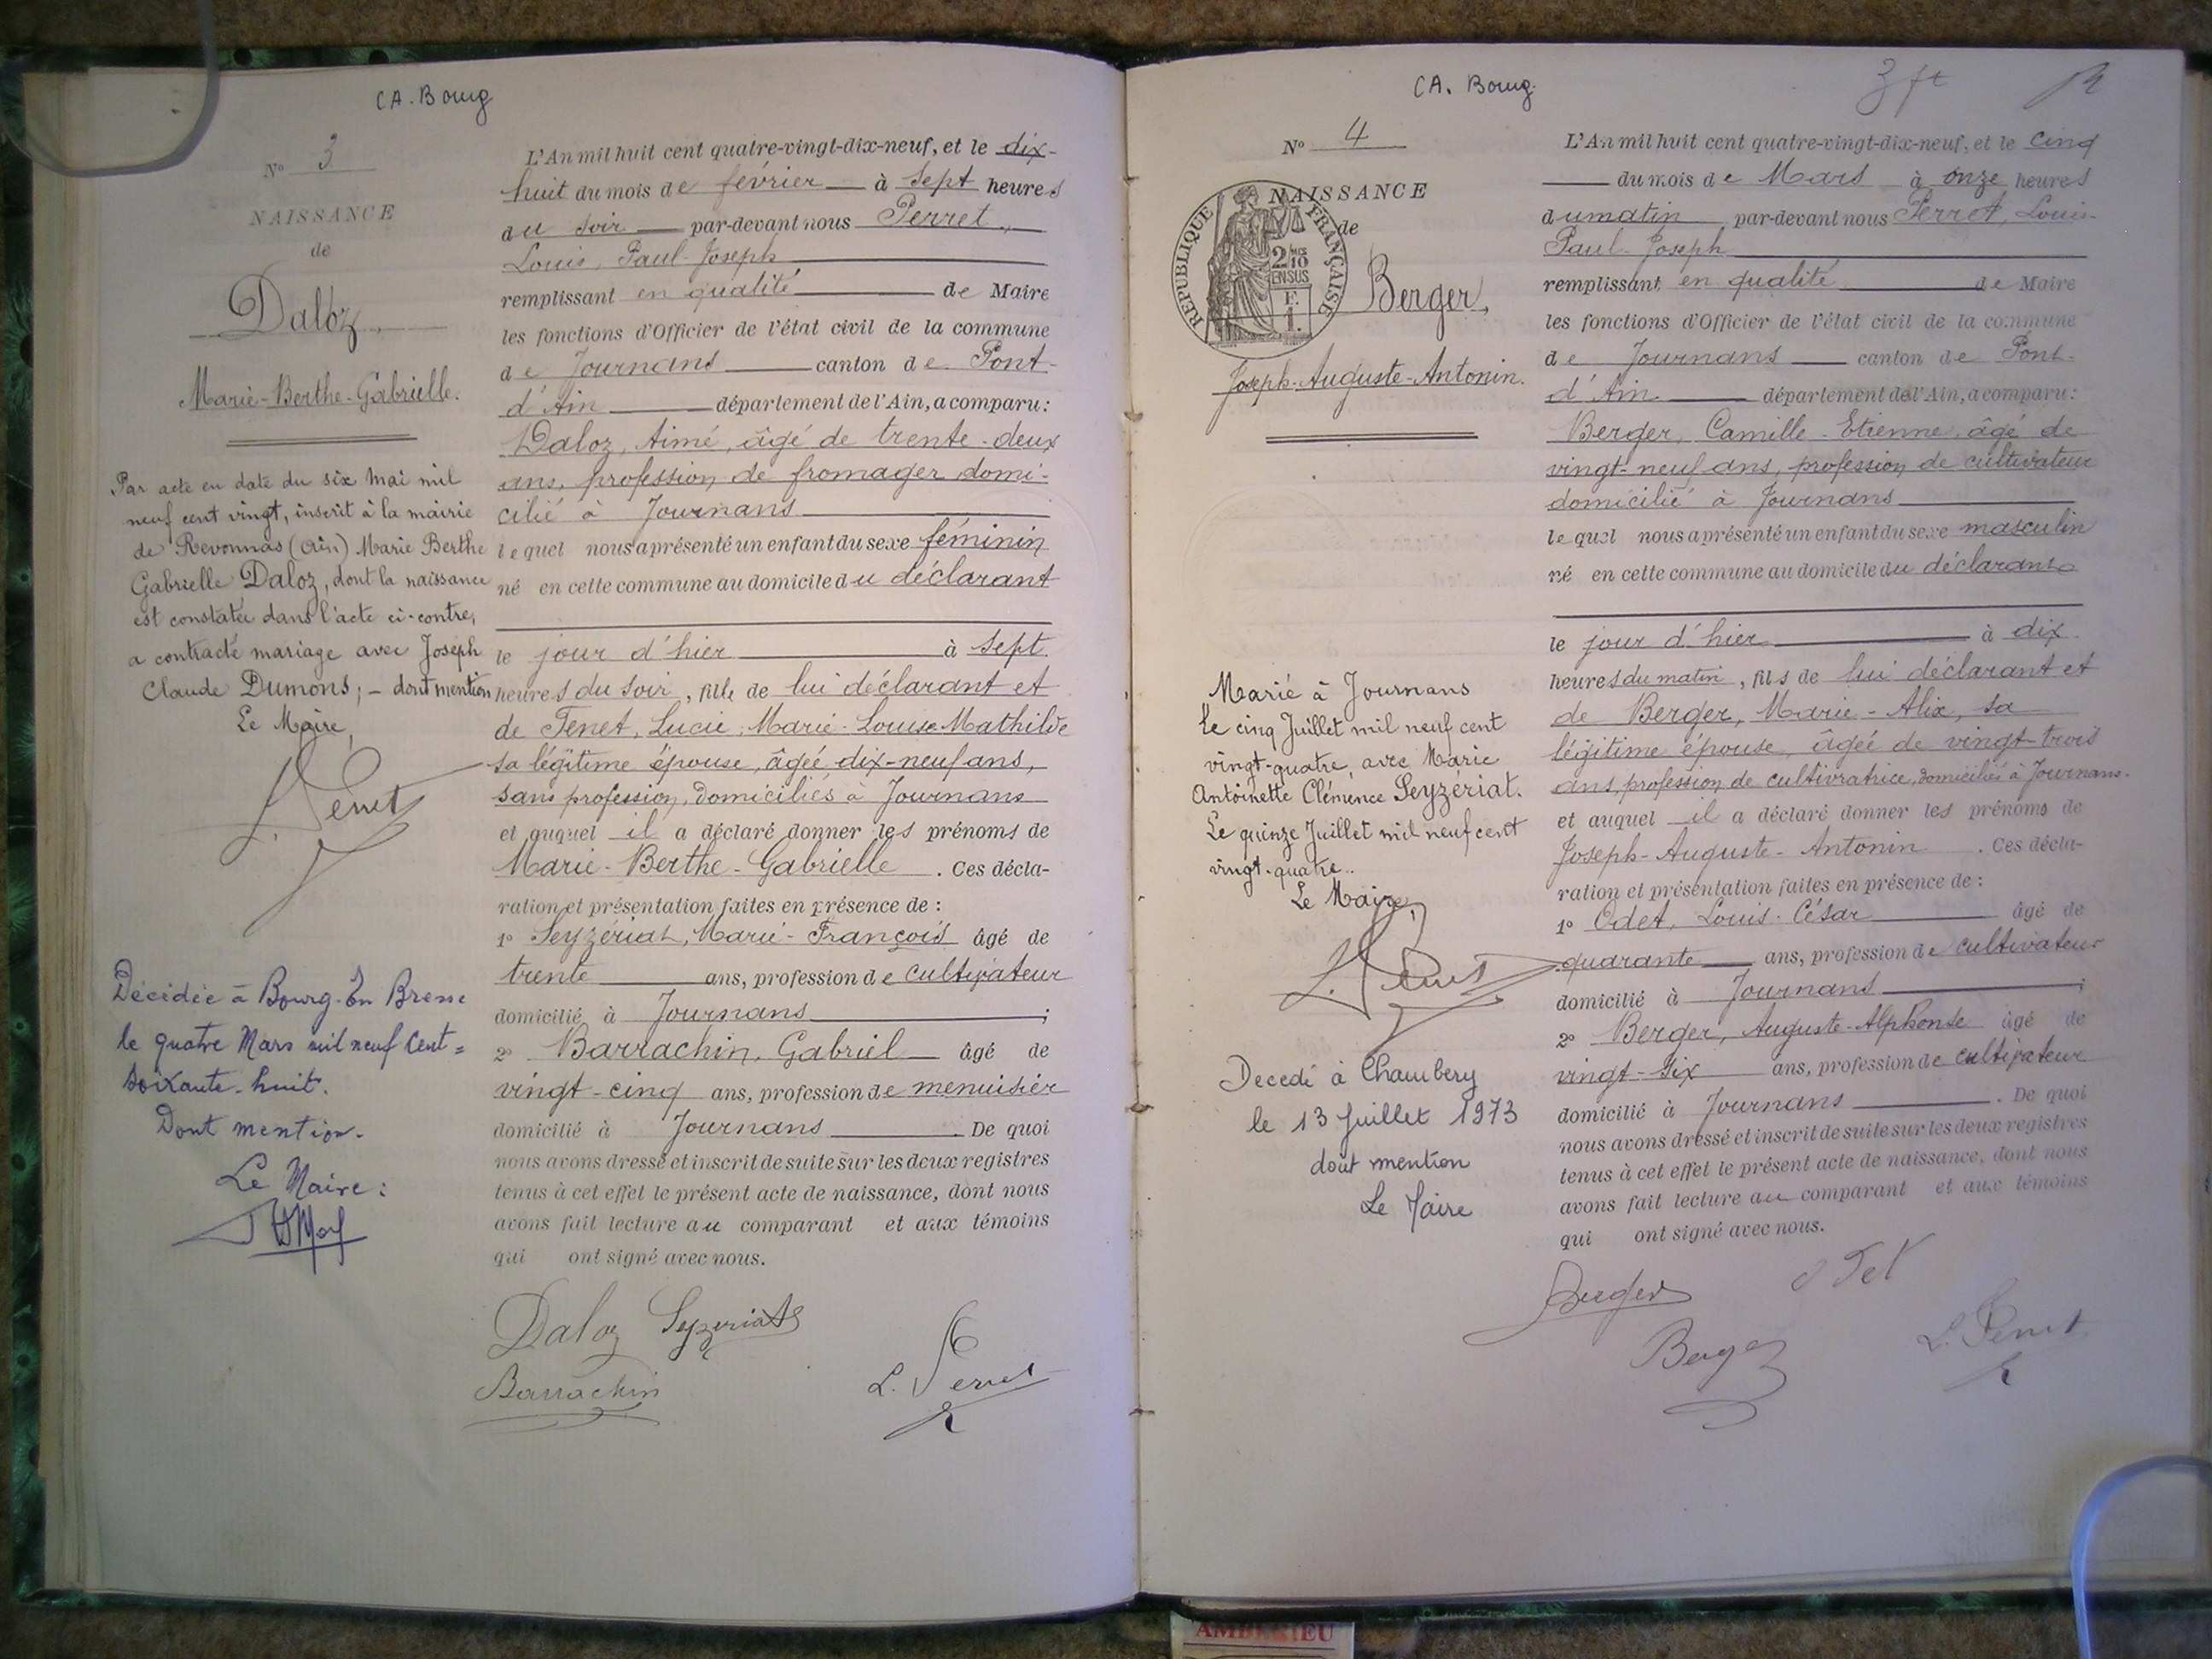 CA. Bourg
N° 3
NAISSANCE
de
Daloz,
Marie-Berthe-Gabrielle.
Par acte en date du six Mai mil
neuf cent vingt, inscrit à la mairie
de Revonnas (Ain) Marie Berthe
Gabrielle Daloz, dont la naissance
est constatée dans l'acte ci-contre,
a contracté mariage avec Joseph
Claude Dumons; - dont mention
Le Maire,
Décédée à Bourg-En Bresse
le quatre Mars mil neuf Cent=
Soixante-huit.
Dont mention.
Le Maire:
L'An mil huit cent quatre-vingt-dix-neuf, et le dix-
huit du mois de février à sept heures
du soir par-devant nous Perret,
Louis, Paul-Joseph
remplissant en qualité de Maire
les fonctions d'Officier de l'état civil de la commune
de Journans canton de Pont-
d'Ain département de l'Ain, a comparu:
Daloz, Aimé, âgé de trente-deux
ans, profession de fromager domi-
cilié à Journans
lequel nous a présenté un enfant du sexe féminin
né en cette commune au domicile du déclarant
le jour d'hier à sept
heures du soir, fille de lui déclarant et
de Tenet, Lucie, Marie-Louise Mathilde
sa légitime épouse, âgée dix-neuf ans,
sans profession, domiciliés à Journans
et auquel il a déclaré donner les prénoms de
Marie-Berthe-Gabrielle. Ces décla-
ration et présentation faites en présence de:
1° Seyzériat, Marie-François âgé de
trente ans, profession de cultivateur
domicilié à Journans;
2° Barrachin, Gabriel âgé de
vingt-cinq ans, profession de menuisier
domicilié à Journans. De quoi
nous avons dressé et inscrit de suite sur les deux registres
tenus à cet effet le présent acte de naissance, dont nous
avons fait lecture au comparant et aux témoins
qui ont signé avec nous.
Daloz Seyzeriat
Barrachin L. Perret
CA. Bourg.
N° 4
NAISSANCE
de
REPUBLIQUE FRANÇAISE
2/10
EN SUS
F.
1.
Berger,
Joseph-Auguste-Antonin.
Marié à Journans
Le cinq Juillet mil neuf cent
vingt-quatre, avec Marie
Antoinette Clémence Seyzériat.
Le quinze Juillet mil neuf cent
vingt-quatre..
Le Maire,
Decedé à Chambery
le 13 Juillet 1973
dout mention
Le Maire
L'An mil huit cent quatre-vingt-dix-neuf, et le cinq
du mois de Mars à onze heures
du matin par-devant nous Perret, Louis-
Paul-Joseph
remplissant en qualité de Maire
les fonctions d'Officier de l'état civil de la commune
de Journans canton de Pont-
d'Ain département de l'Ain, a comparu:
Berger, Camille-Etienne, âgé de
vingt-neuf ans, profession de cultivateur
domicilié à Journans
lequel nous a présenté un enfant du sexe masculin
né en cette commune au domicile du déclarant
le jour d'hier à dix
heures du matin, fils de lui déclarant et
de Berger, Marie-Alix, sa
légitime épouse, âgée de vingt-trois
ans, profession de cultivratrice, domiciliés à Journans.
et auquel il a déclaré donner les prénoms de
Joseph-Auguste-Antonin. Ces décla-
ration et présentation faites en présence de:
1° Odet, Louis-César âgé de
quarante ans, profession de cultivateur
domicilié à Journans;
2° Berger, Auguste-Alphonse âgé de
vingt-six ans, profession de cultivateur
domicilié à Journans. De quoi
nous avons dressé et inscrit de suite sur les deux registres
tenus à cet effet le présent acte de naissance, dont nous
avons fait lecture au comparant et aux témoins
qui ont signé avec nous.
Berger Odet
Berger L. Perret
AMBERIEU